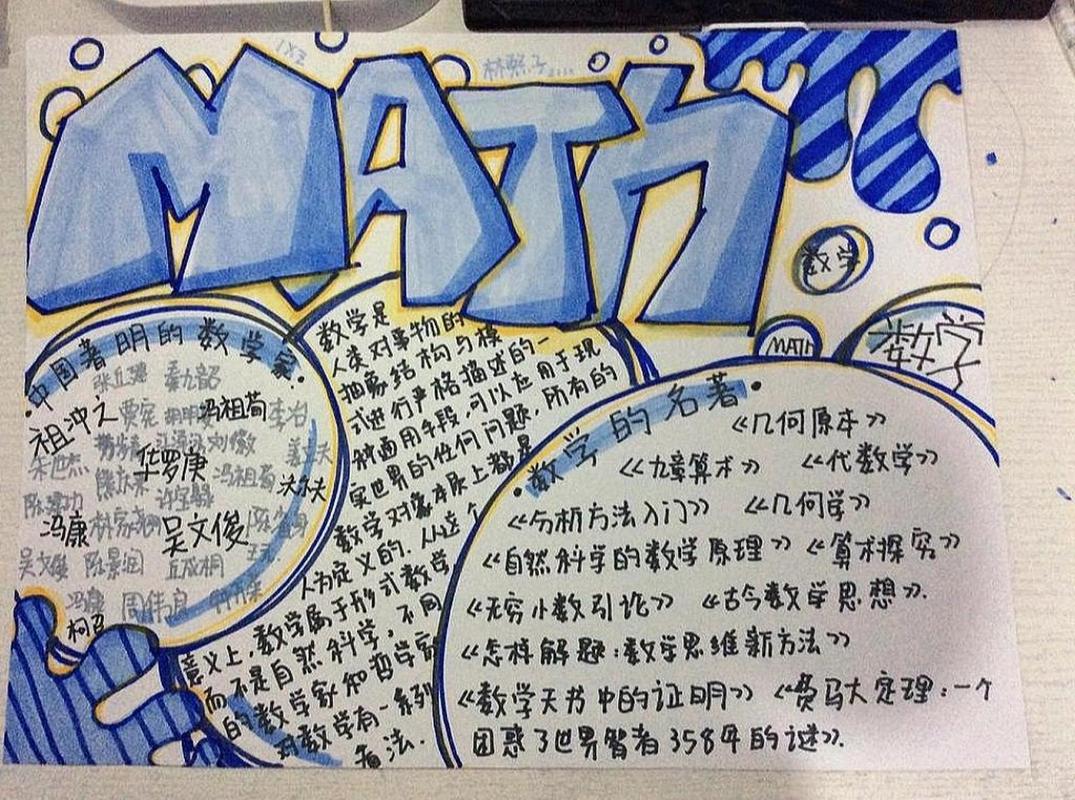 MATH
数学
数学
MATH
中国著明的数学家
张丘建 秦九韶
祖冲之 贾宪 冯祖荀 李冶
刘徽
朱世杰 华罗庚 冯祖荀
熊庆来 许宝騄
陈建功
冯康 林家翘 吴文俊
吴文俊 陈景润 丘成桐
冯康 周伟良
柯召
数学是
人类对事物的
抽象结构与模
式进行严格描述的一
种通用手段，可以应用于现
实世界的任何问题，所有的
数学对象本质上都是
人为定义的．从这个
意义上，数学属于形式数学
而不是自然科学，不同
的数学家和哲学家
对数学有一系列
看法．
数学的名著
《几何原本》
《九章算术》 《代数学》
《分析方法入门》 《几何学》
《自然科学的数学原理》 《算术探究》
《无穷小数引论》 《古今数学思想》．
《怎样解题：数学思维新方法》
《数学天书中的证明》 《费马大定理：一个
困惑了世界智者358年的谜》．